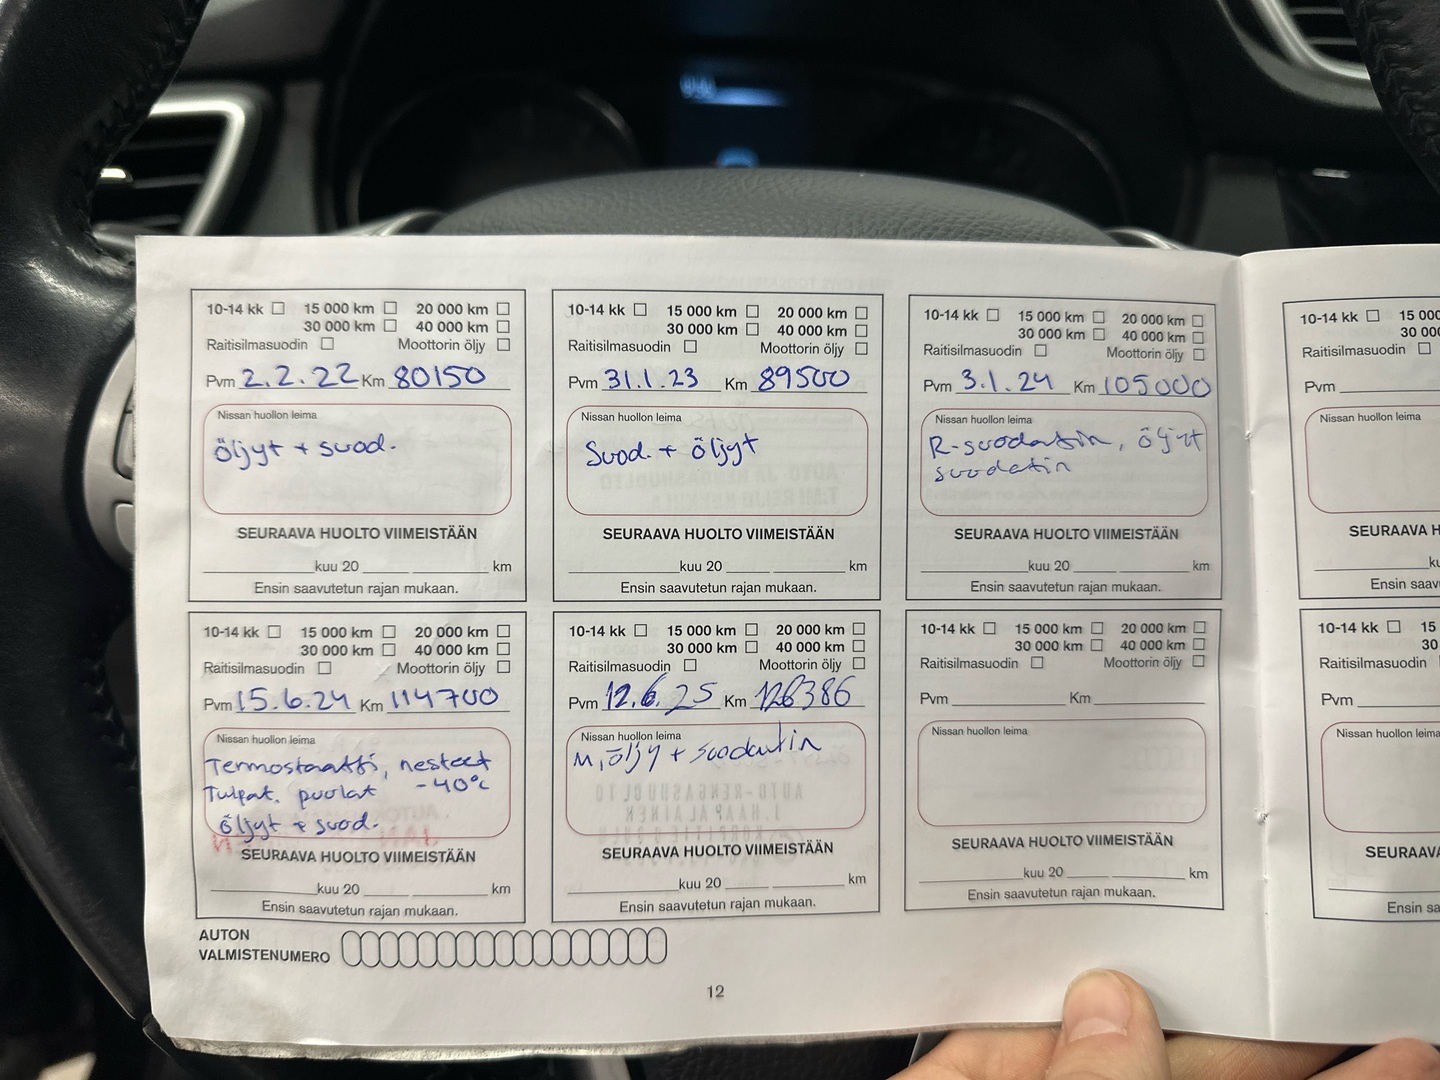 10-14 kk 15 000 km 20 000 km
30 000 km 40 000 km
Raitisilmasuodin Moottorin öljy
Pvm 2.2.22 Km 80150
Nissan huollon leima
öljyt + suod.
SEURAAVA HUOLTO VIIMEISTÄÄN
kuu 20 km
Ensin saavutetun rajan mukaan.
10-14 kk 15 000 km 20 000 km
30 000 km 40 000 km
Raitisilmasuodin Moottorin öljy
Pvm 31.1.23 Km 89500
Nissan huollon leima
Suod. + öljyt
SEURAAVA HUOLTO VIIMEISTÄÄN
kuu 20 km
Ensin saavutetun rajan mukaan.
10-14 kk 15 000 km 20 000 km
30 000 km 40 000 km
Raitisilmasuodin Moottorin öljy
Pvm 3.1.24 Km 105000
Nissan huollon leima
R-suodatin, öljyt
suodatin
SEURAAVA HUOLTO VIIMEISTÄÄN
kuu 20 km
Ensin saavutetun rajan mukaan.
10-14 kk 15 000 km 20 000 km
30 000 km 40 000 km
Raitisilmasuodin Moottorin öljy
Pvm 15.6.24 Km 114700
Nissan huollon leima
Termostaatti, nesteet
Tulpat. puolat -40°c
öljyt + suod.
SEURAAVA HUOLTO VIIMEISTÄÄN
kuu 20 km
Ensin saavutetun rajan mukaan.
10-14 kk 15 000 km 20 000 km
30 000 km 40 000 km
Raitisilmasuodin Moottorin öljy
Pvm 12.6.25 Km 126386
Nissan huollon leima
M,öljy + suodatin
SEURAAVA HUOLTO VIIMEISTÄÄN
kuu 20 km
Ensin saavutetun rajan mukaan.
10-14 kk 15 000 km 20 000 km
30 000 km 40 000 km
Raitisilmasuodin Moottorin öljy
Pvm Km
Nissan huollon leima
SEURAAVA HUOLTO VIIMEISTÄÄN
kuu 20 km
Ensin saavutetun rajan mukaan.
AUTON
VALMISTENUMERO
12
10-14 kk 15 000
30 00
Raitisilmasuodin
Pvm
Nissan huollon leima
SEURAAVA H
Ensin saav
10-14 kk 15
30
Raitisilmasuodin
Pvm
Nissan huollon leima
SEURAAVA
Ensin sa